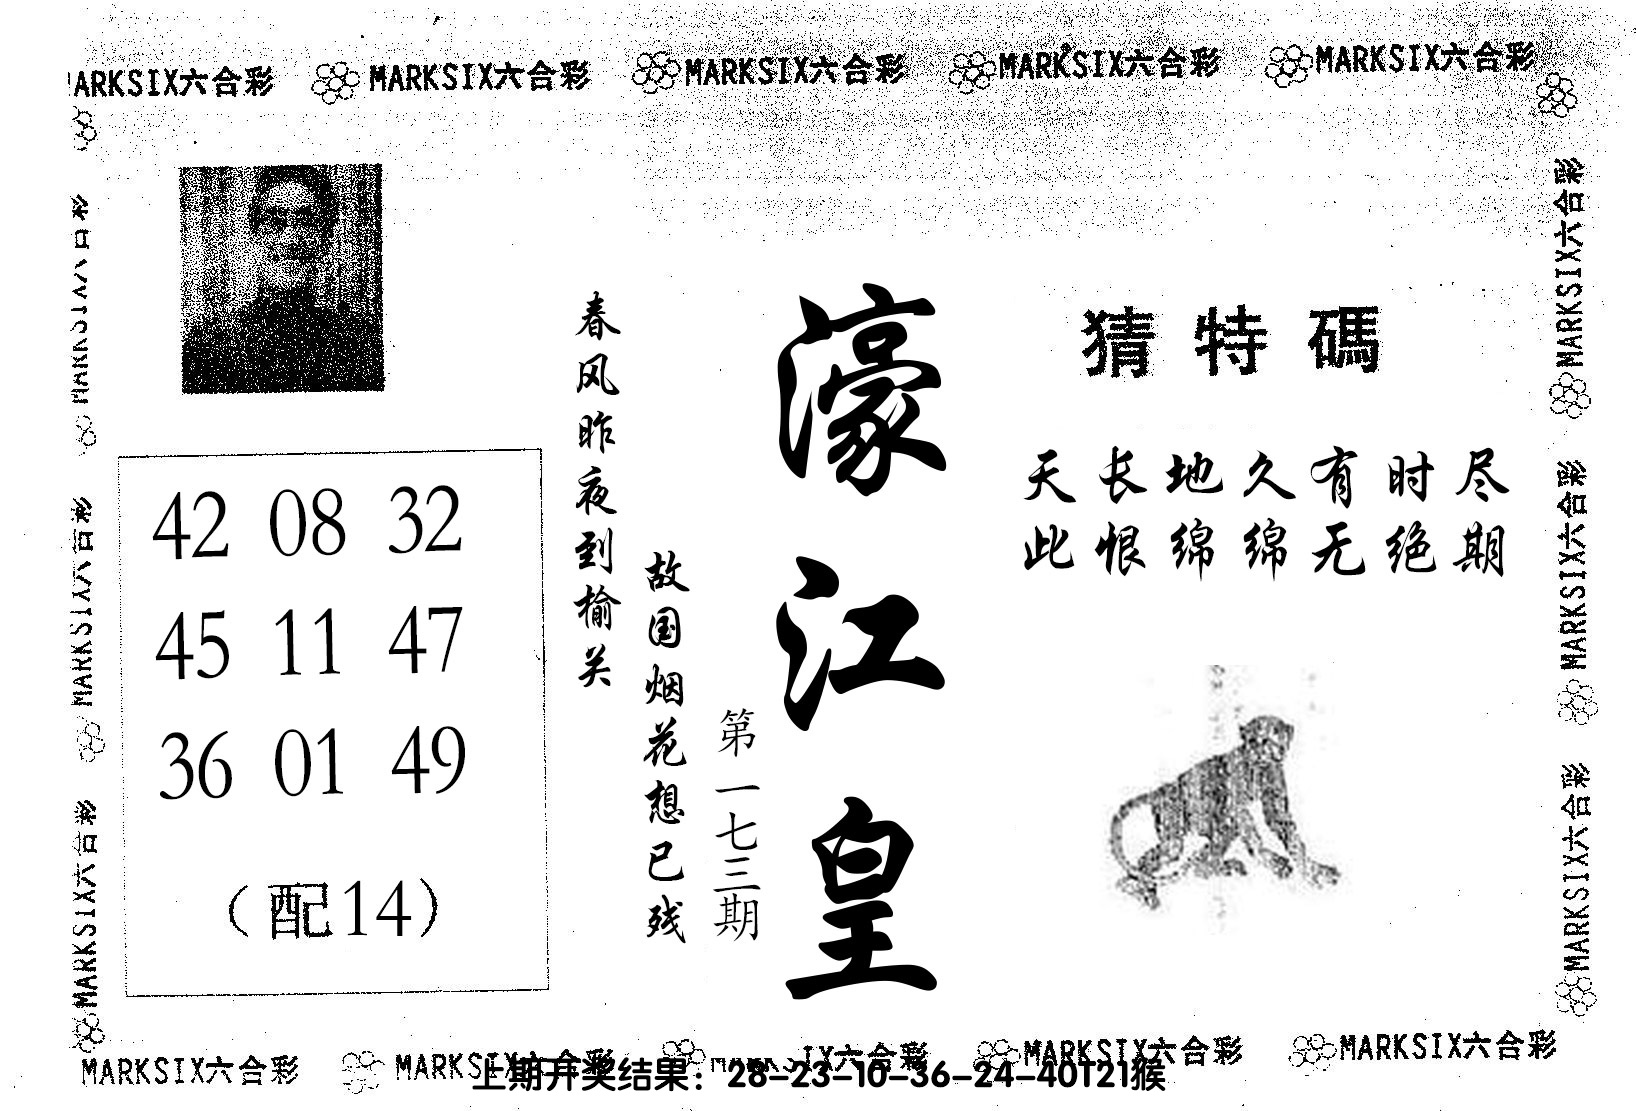 MARKSIX六合彩 MARKSIX六合彩 MARKSIX六合彩 MARKSIX六合彩 MARKSIX六合彩
猜特碼
天长地久有时尽
此恨绵绵无绝期
濠江皇
第一七三期
春风昨夜到榆关
故国烟花想已残
42 08 32
45 11 47
36 01 49
（配14）
MARKSIX六合彩
MARKSIX六合彩
MARKSIX六合彩
MARKSIX六合彩
MARKSIX六合彩
MARKSIX六合彩
MARKSIX六合彩 MARKSIX六合彩 MARKSIX六合彩 MARKSIX六合彩 MARKSIX六合彩
上期开奖结果：28-23-10-36-24-40T21猴